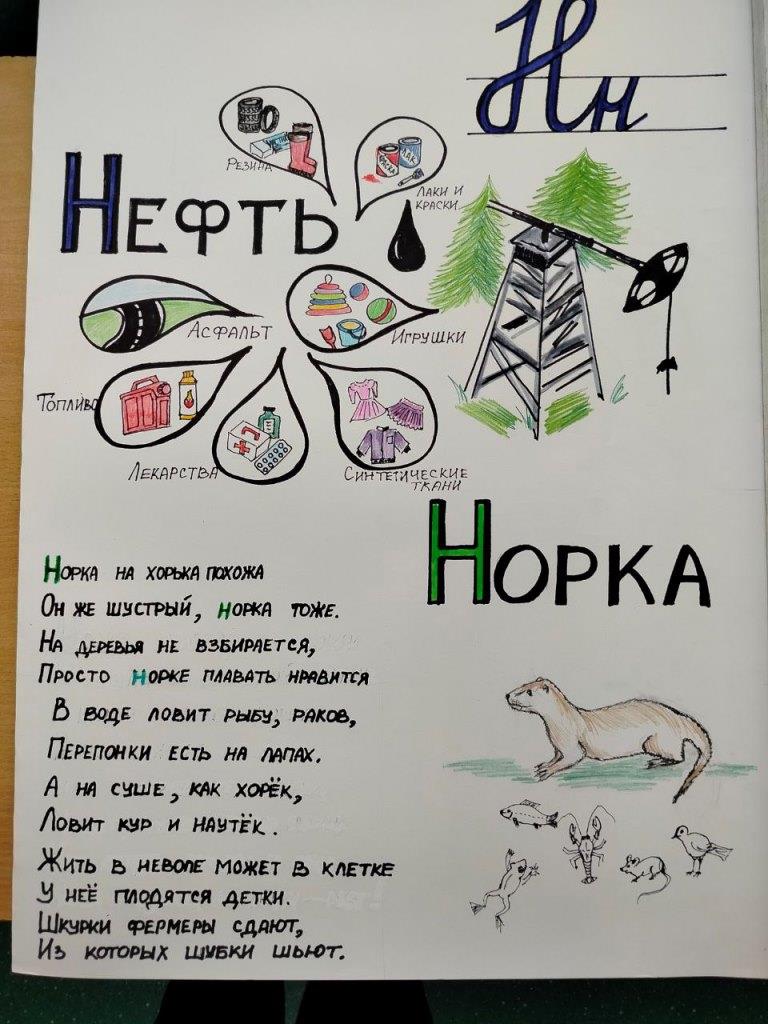 Нн
Резина
Краска
Лак
Лаки и
краски.
Нефть
Асфальт
Игрушки
Топливо
Лекарства
Синтетические
ткани
Норка
Норка на хорька похожа
Он же шустрый, норка тоже.
На деревья не взбирается,
Просто норке плавать нравится
В воде ловит рыбу, раков,
Перепонки есть на лапах.
А на суше, как хорёк,
Ловит кур и наутёк.
Жить в неволе может в клетке
У неё плодятся детки.
Шкурки фермеры сдают,
Из которых шубки шьют.